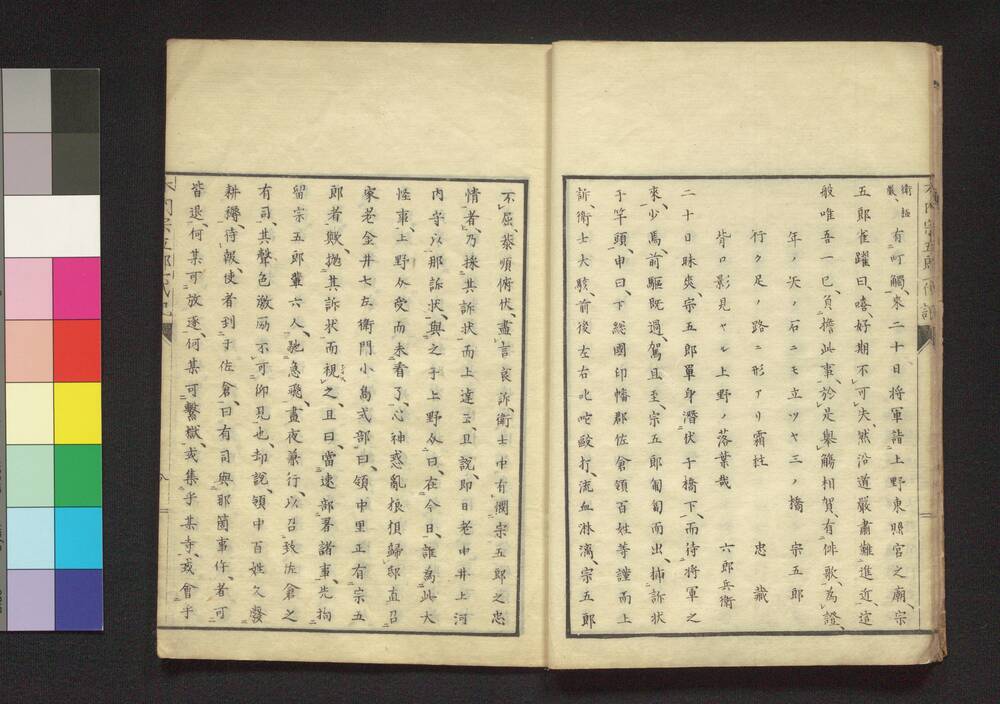 衛極
嚴、有町觸、來二十日将軍詣上野東照宮之廟、宗
五郎雀躍曰、嘻、好期不可失、然沿道嚴肅難進近、這
般唯吾一已負擔此事、於是舉觴相賀、有俳歌、為證、
年ノ矢ノ石ニモ立ツヤ三ノ橋　宗五郎
行ク足ノ路ニ形アリ霜柱　忠藏
皆ロ影見ヤレ上野ノ落葉哉　六郎兵衛
二十日昧爽、宗五郎單身潛伏于橋下、而待将軍之
來、少焉、前驅既過、駕且至、宗五郎匍匐而出、揷訴状
于竿頭、申曰、下総國印幡郡佐倉領百姓等謹而上
訴、衛士大駭、前後左右叱咤毆打、流血淋漓、宗五郎
不屈、恭順俯伏、盡言哀訴、衛士中有憫宗五郎之忠
情者、乃採其訴状、而上達云、且説、即日老中井上河
内守以那訴状、與之于上野介曰、在今日、誰為此大
怪事、上野介受而未看了、心神惑亂狼狽歸邸直召
家老金井七左衛門小島式部曰、領中里正有宗五
郎者歟、抛其訴状而視之、且曰、當速部署諸事、先拘
留宗五郎輩六人、馳急飛、晝夜兼行、以召致佐倉之
有司、其聲色激勵不可仰見也、却説、領中百姓久廢
耕耰、待報、使者到于佐倉、曰有司與那箇事件者可
皆退、何某可放逐、何某可繫獄、或集乎某寺、或會乎